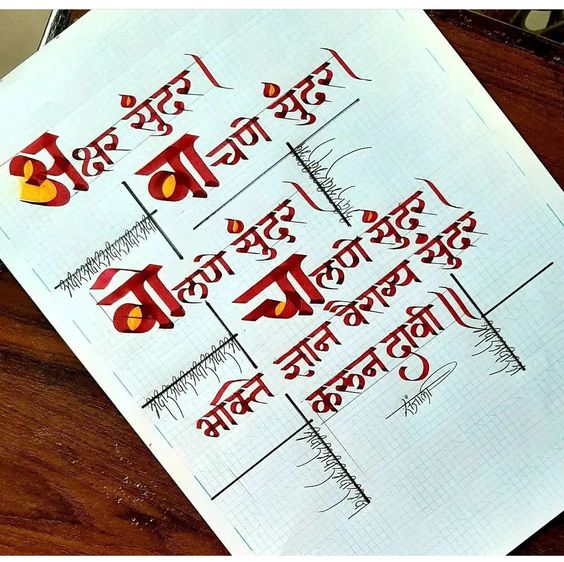 अक्षर सुंदर।
वाचणे सुंदर।
बोलणे सुंदर।
चालणे सुंदर।
भक्ति ज्ञान वैराग्य सुंदर
करून दावी॥